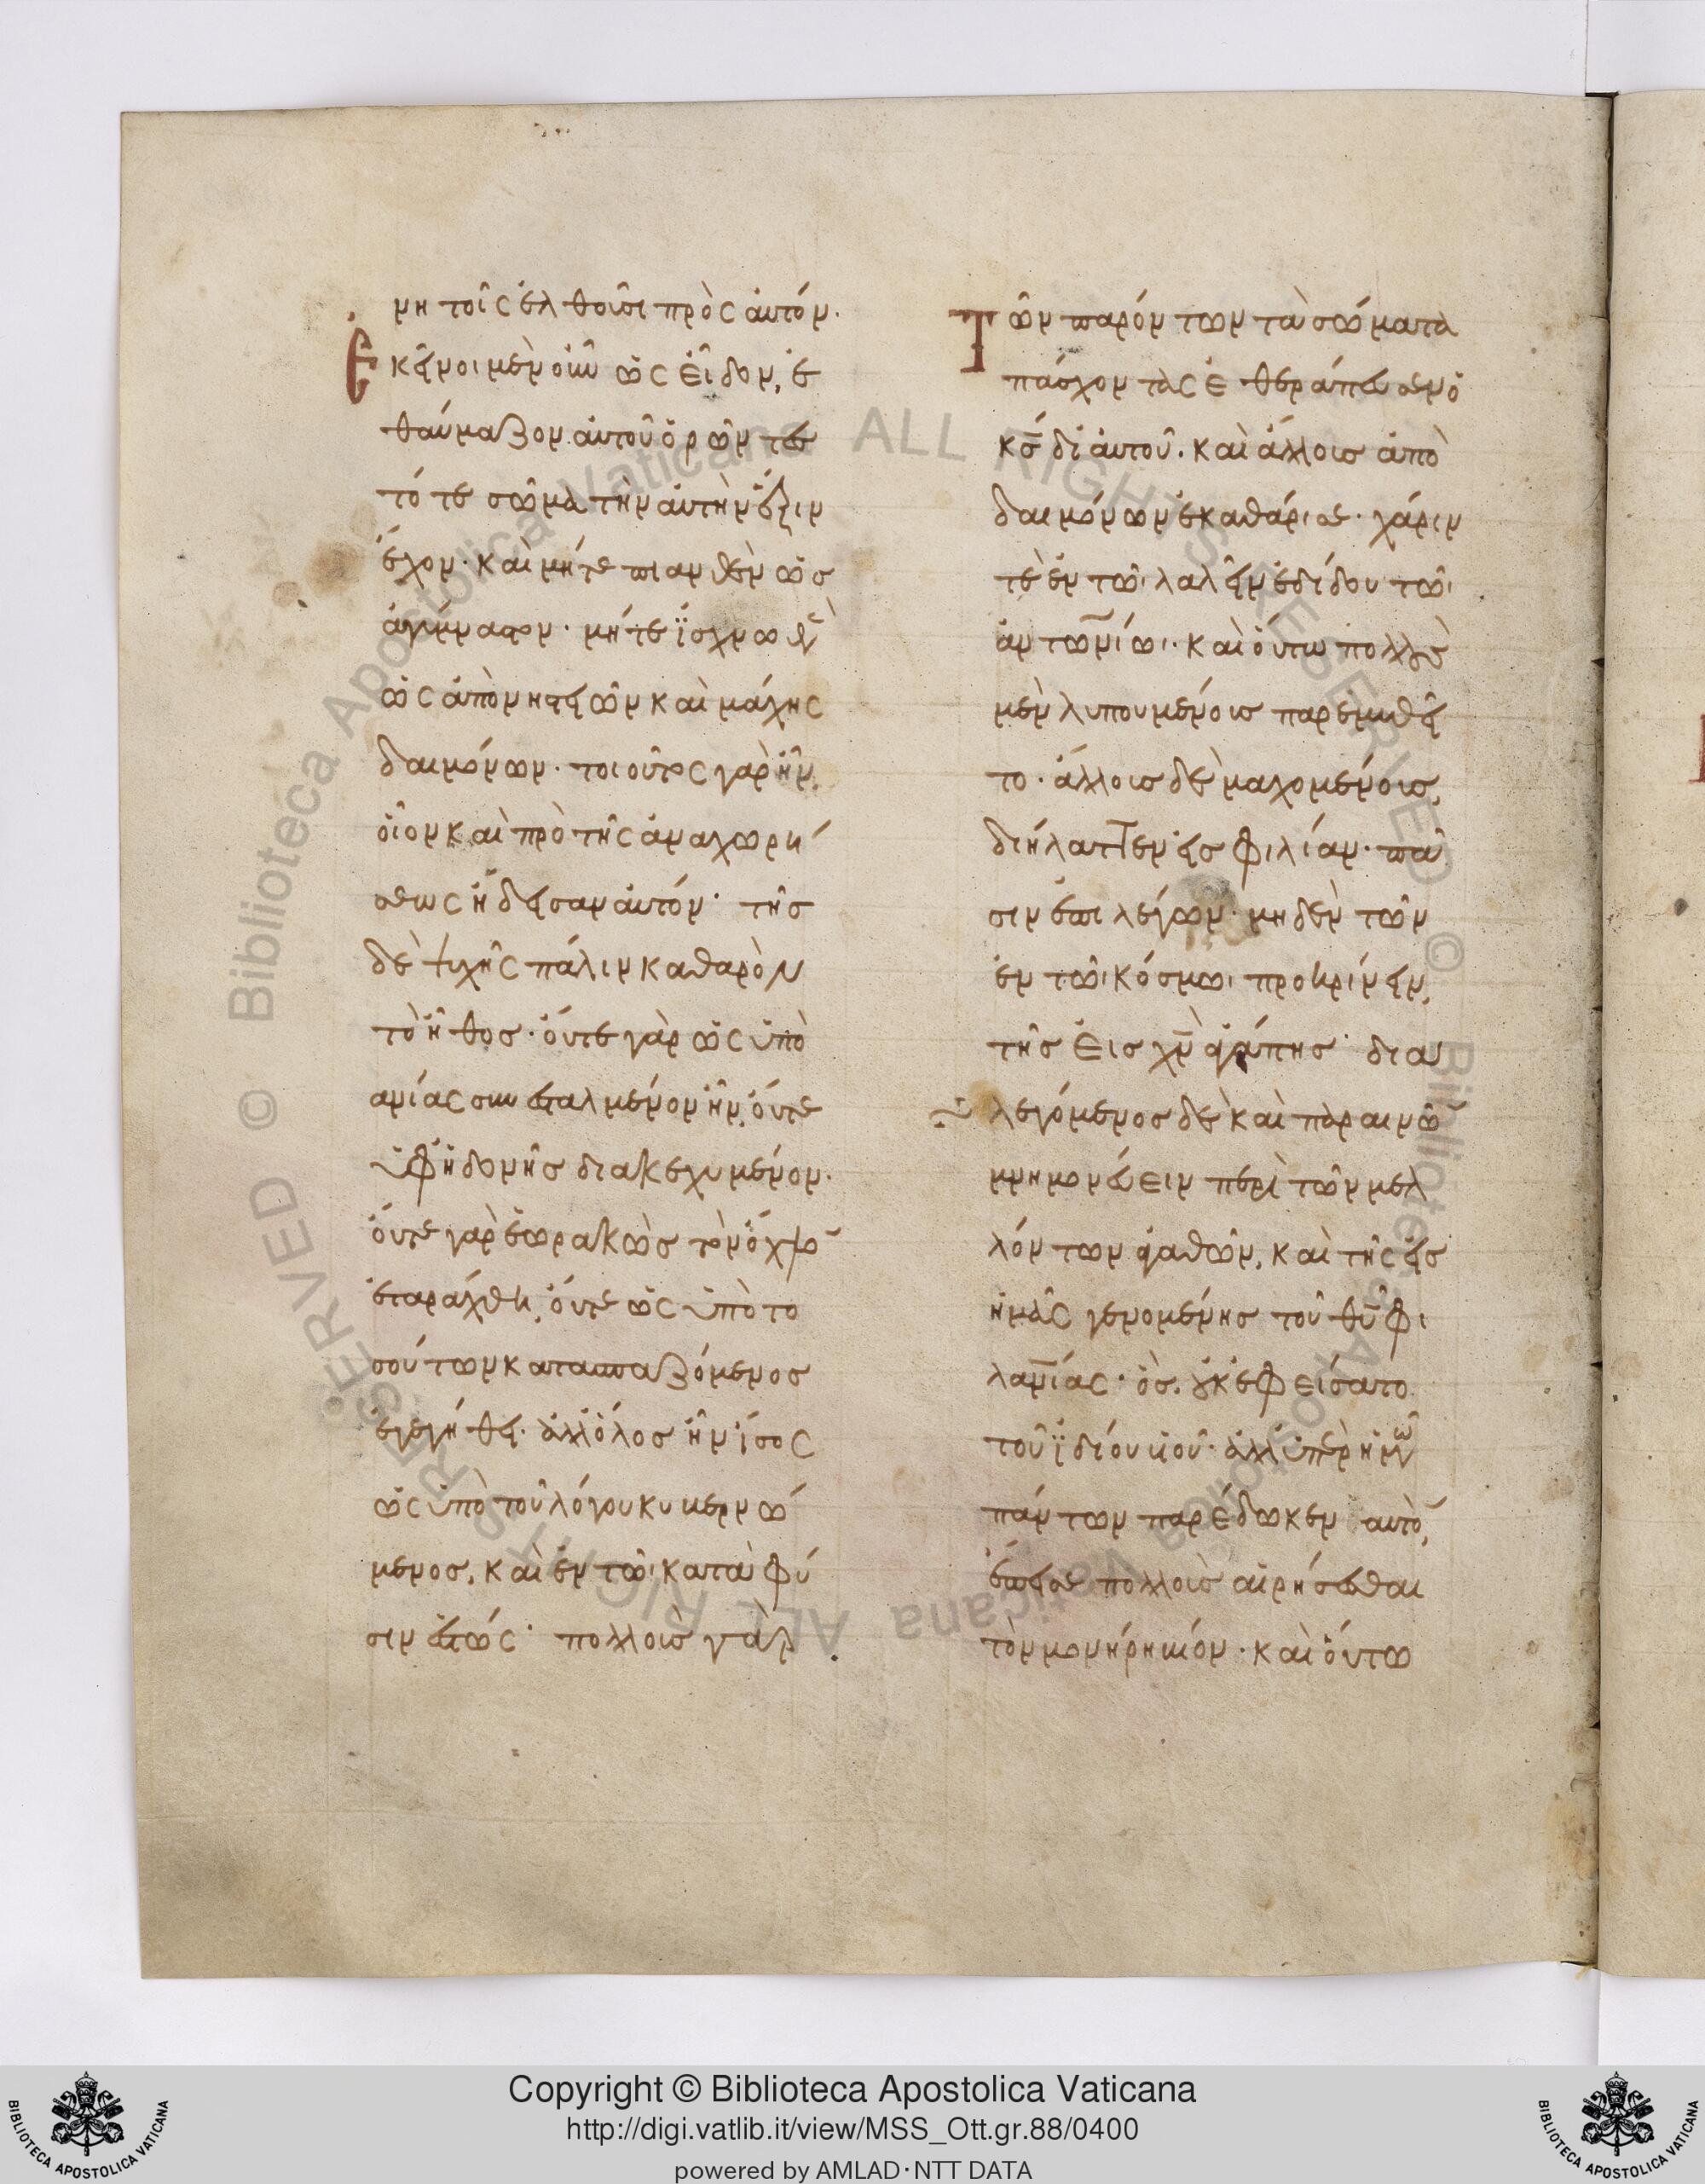 μη τοῖς ἐλθοῦσι πρὸς ἀυτόν·
Ἐκεῖνοι μὲν οὖν ὡς εἶδον, ἐ
θαύμαζον ἀυτοῦ ὁρῶντες
τό τε σῶμα τὴν ἀυτὴν ἕξιν
ἔχον· καὶ μήτε πιανθὲν ὡσ
ἀγύμναστον· μήτε ϊσχνωθὲν
ὡς ἀπὸ νηστειῶν καὶ μάχης
δαιμόνων· τοιοῦτος γὰρ ἦν,
οἷον καὶ πρὸ τῆς ἀναχωρή
σεως ἤδεισαν ἀυτόν· τῆσ
δὲ ψυχῆς πάλιν καθαρὸν
τὸ ἦθοσ· ὄυτε γὰρ ὡς ὑπὸ
ανίας συνεσταλμένον ἦν, ὄυτε
ὑφ ἡδονῆσ διακεχυμένον·
ὄυτε γὰρ ἑωρακὼσ τὸν ὄχλο̄
ἐταράχθη, ὄυτε ὡς ὑπὸ το
σούτων κατασπαζόμενοσ
ἐγεγήθει· ἀλλ ὅλοσ ἦν ἴσος
ὡς ὑπὸ τοῦ λόγου κυβερνώ
μενοσ, καὶ ἐν τῶι κατὰ φύ
σιν ἑστώς· πολλοὺσ γὰρ
Τῶν παρόντων τὰ σώματα
πάσχοντας ἐθεράπευσεν ὁ
κ̅σ̅ δι ἀυτοῦ· καὶ ἄλλουσ ἀπὸ
δαιμόνων ἐκαθάρισε· χάριν
τὲ ἐν τῶι λαλεῖν ἐδίδου τῶι
ἀντωνίωι· καὶ ὅυτω πολλοὺς
μὲν λυπουμένουσ παρεμυθεῖ
το· ἄλλουσ δὲ μαχομένουσ,
διήλαττεν εἰσ φιλίαν· πᾶ
σιν ἐπιλέγων· μηδὲν τῶν
ἐν τῶι κόσμωι προκρίνειν,
τῆσ εἰσ χ̅ν̅ ἀγάπησ· δια
λεγόμενοσ δὲ καὶ παραινῶ̄
μνημονέυειν περὶ τῶν μελ
λόντων ἀγαθῶν, καὶ τῆς εἰσ
ἡμᾶς γενομένησ τοῦ θ̅υ̅ φι
λαν̅ίας· ὃσ ουκ ἐφείσατο
τοῦ ϊδίου υἱοῦ· ἀλλ ὑπὲρ ἡμῶν
πάντων παρέδωκεν αυτό̄,
ἔπεισε πολλοὺσ αἱρήσασθαι
τὸν μονήρη βίον· καὶ ὅυτω
Copyright © Biblioteca Apostolica Vaticana
http://digi.vatlib.it/view/MSS_Ott.gr.88/0400
powered by AMLAD·NTT DATA